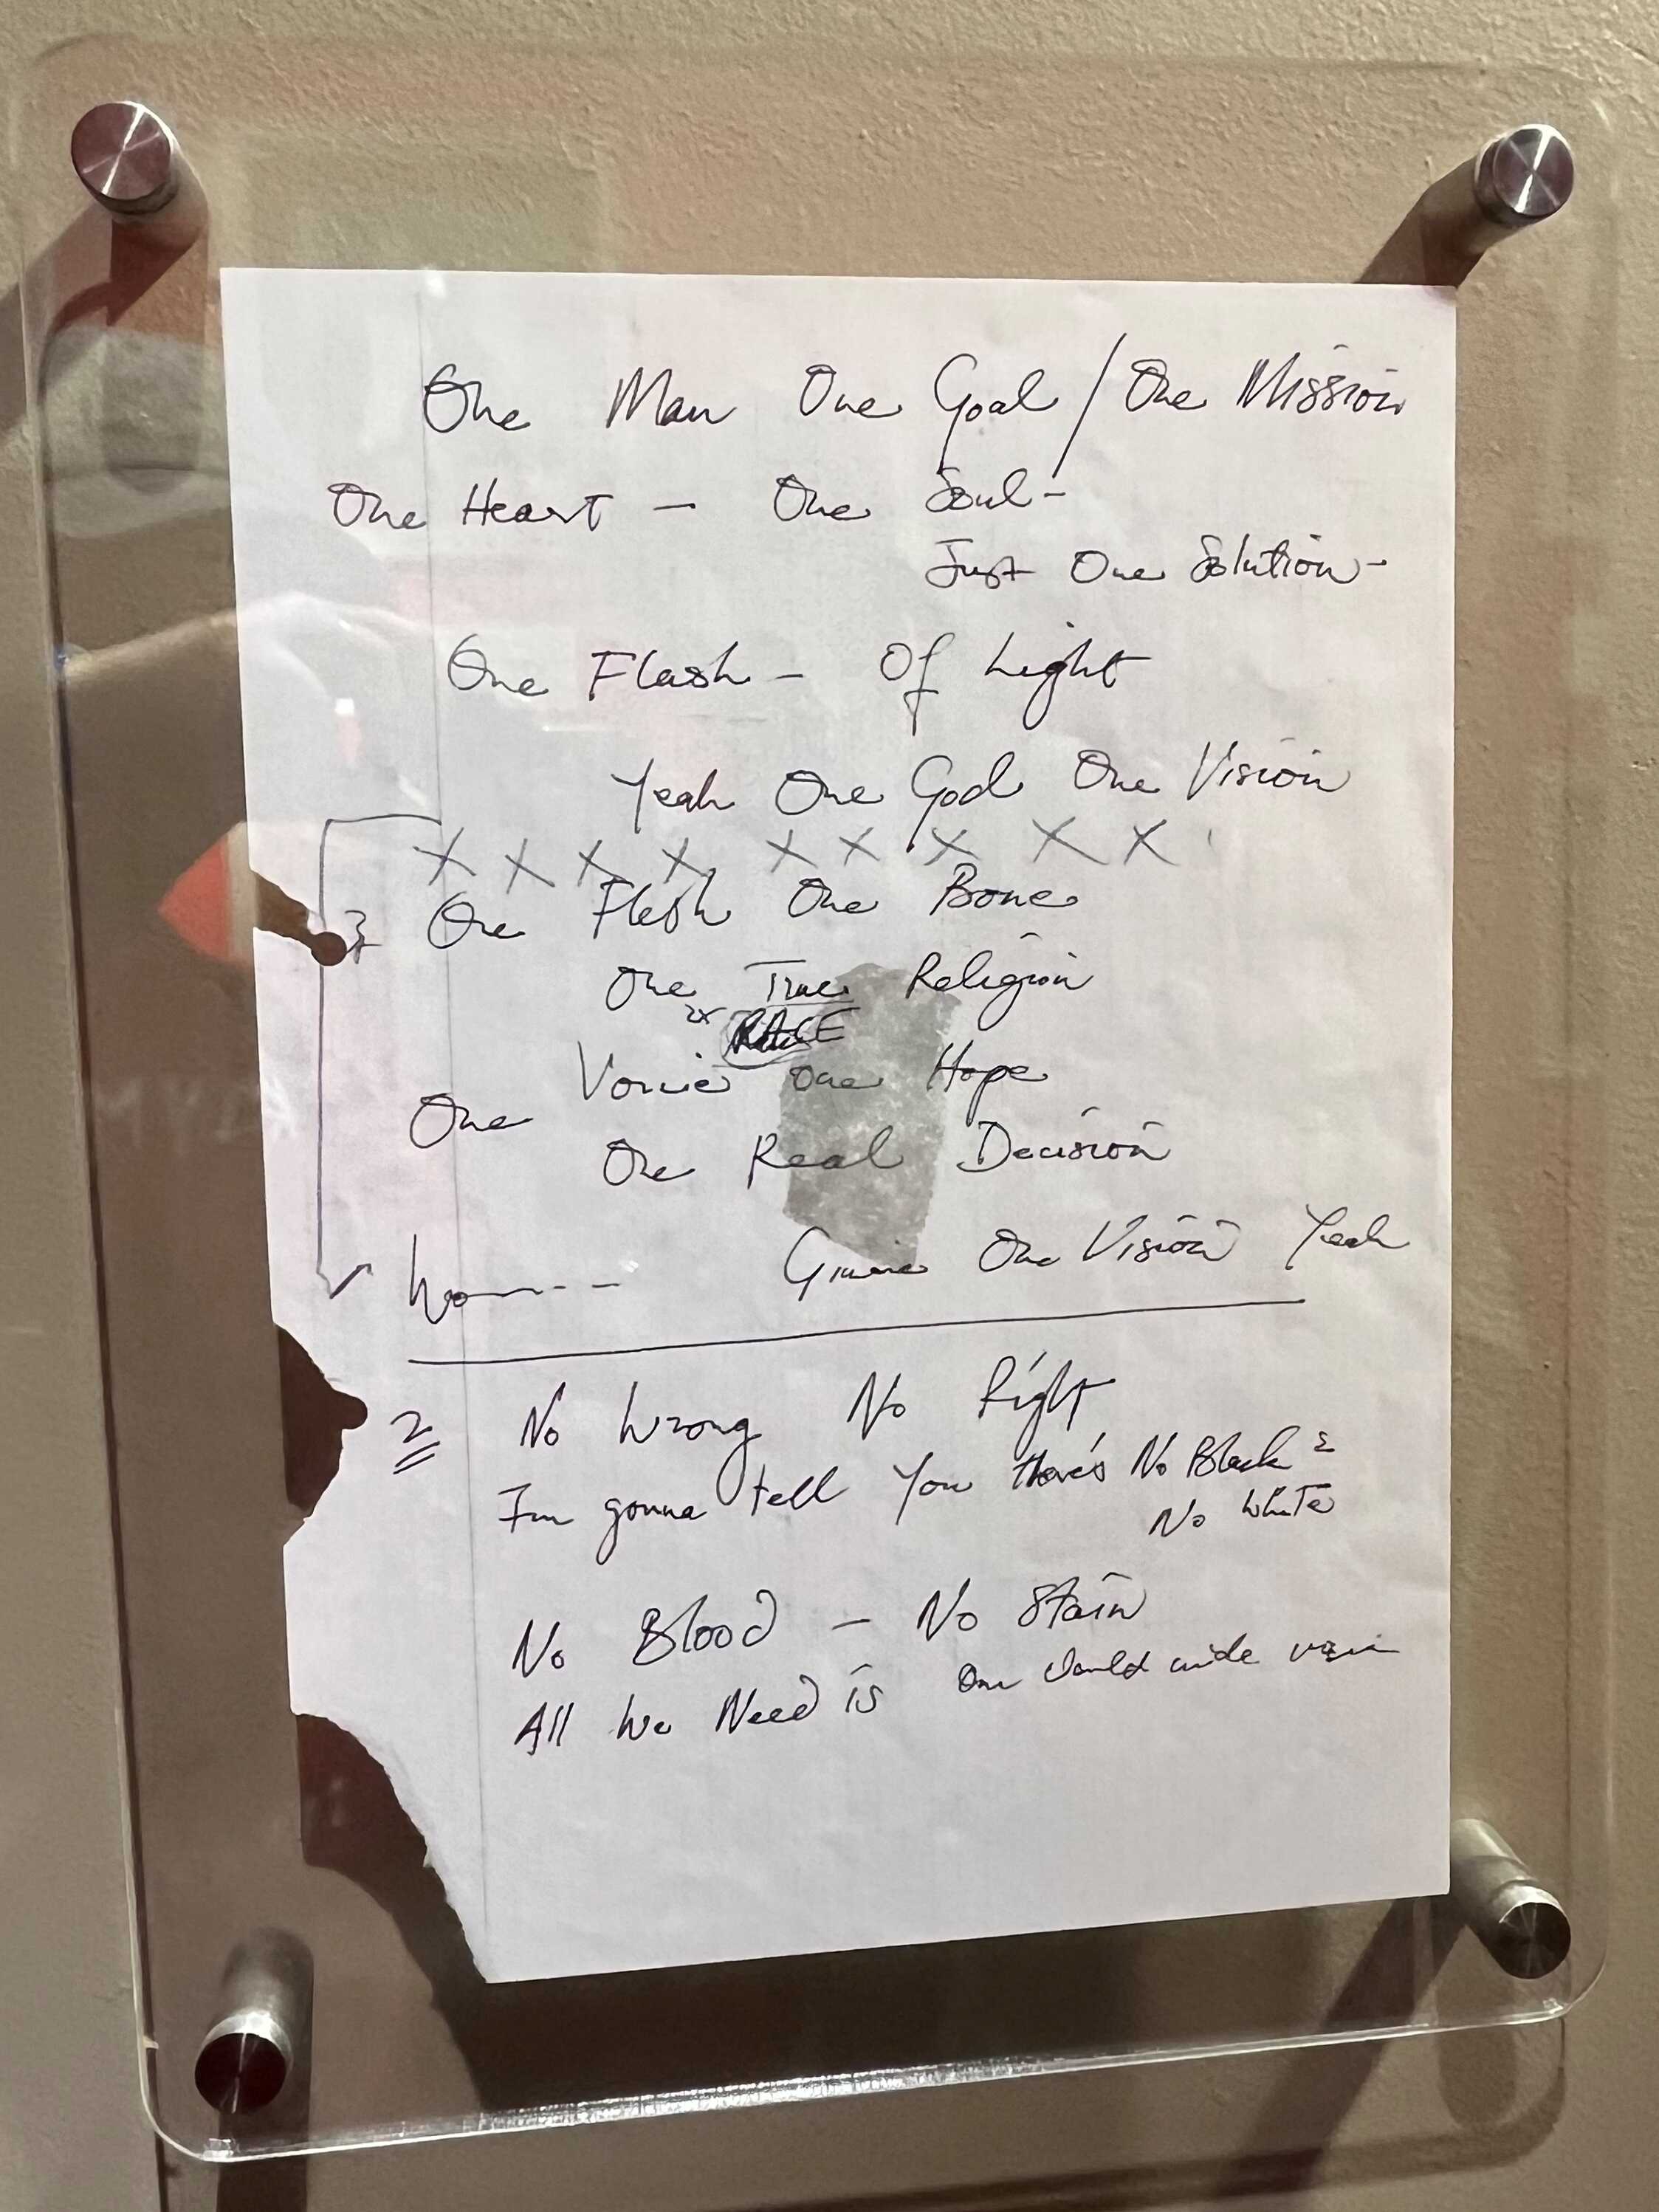 One Man One Goal / One Mission
One Heart - One Soul -
Just One Solution -
One Flash - Of Light
Yeah One God One Vision
X X X X X X X X X
One Flesh One Bone
One True Religion
RACE
One Voice One Hope
One Real Decision
Wo---- Gimme One Vision Yeah
2 No Wrong No Right
I'm gonna tell You there's No Black &
No White
No Blood - No Stain
All We Need is One World wide